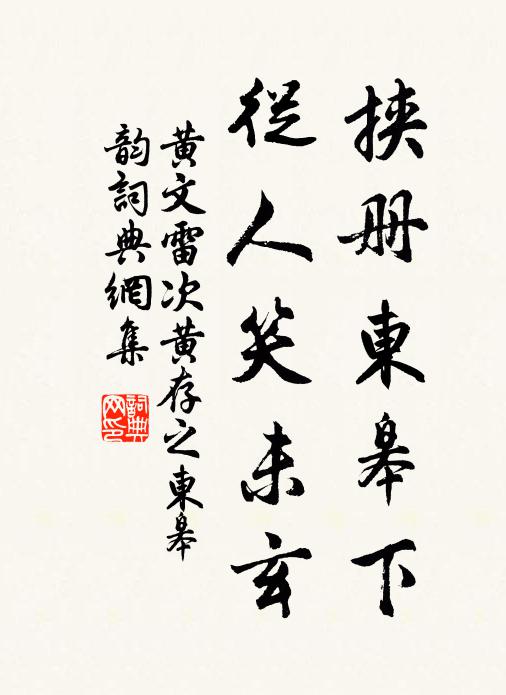 挾册東皋下
從人笑未玄
黄文雷次黄存之東皋
韵詞典網集
詞典
网印